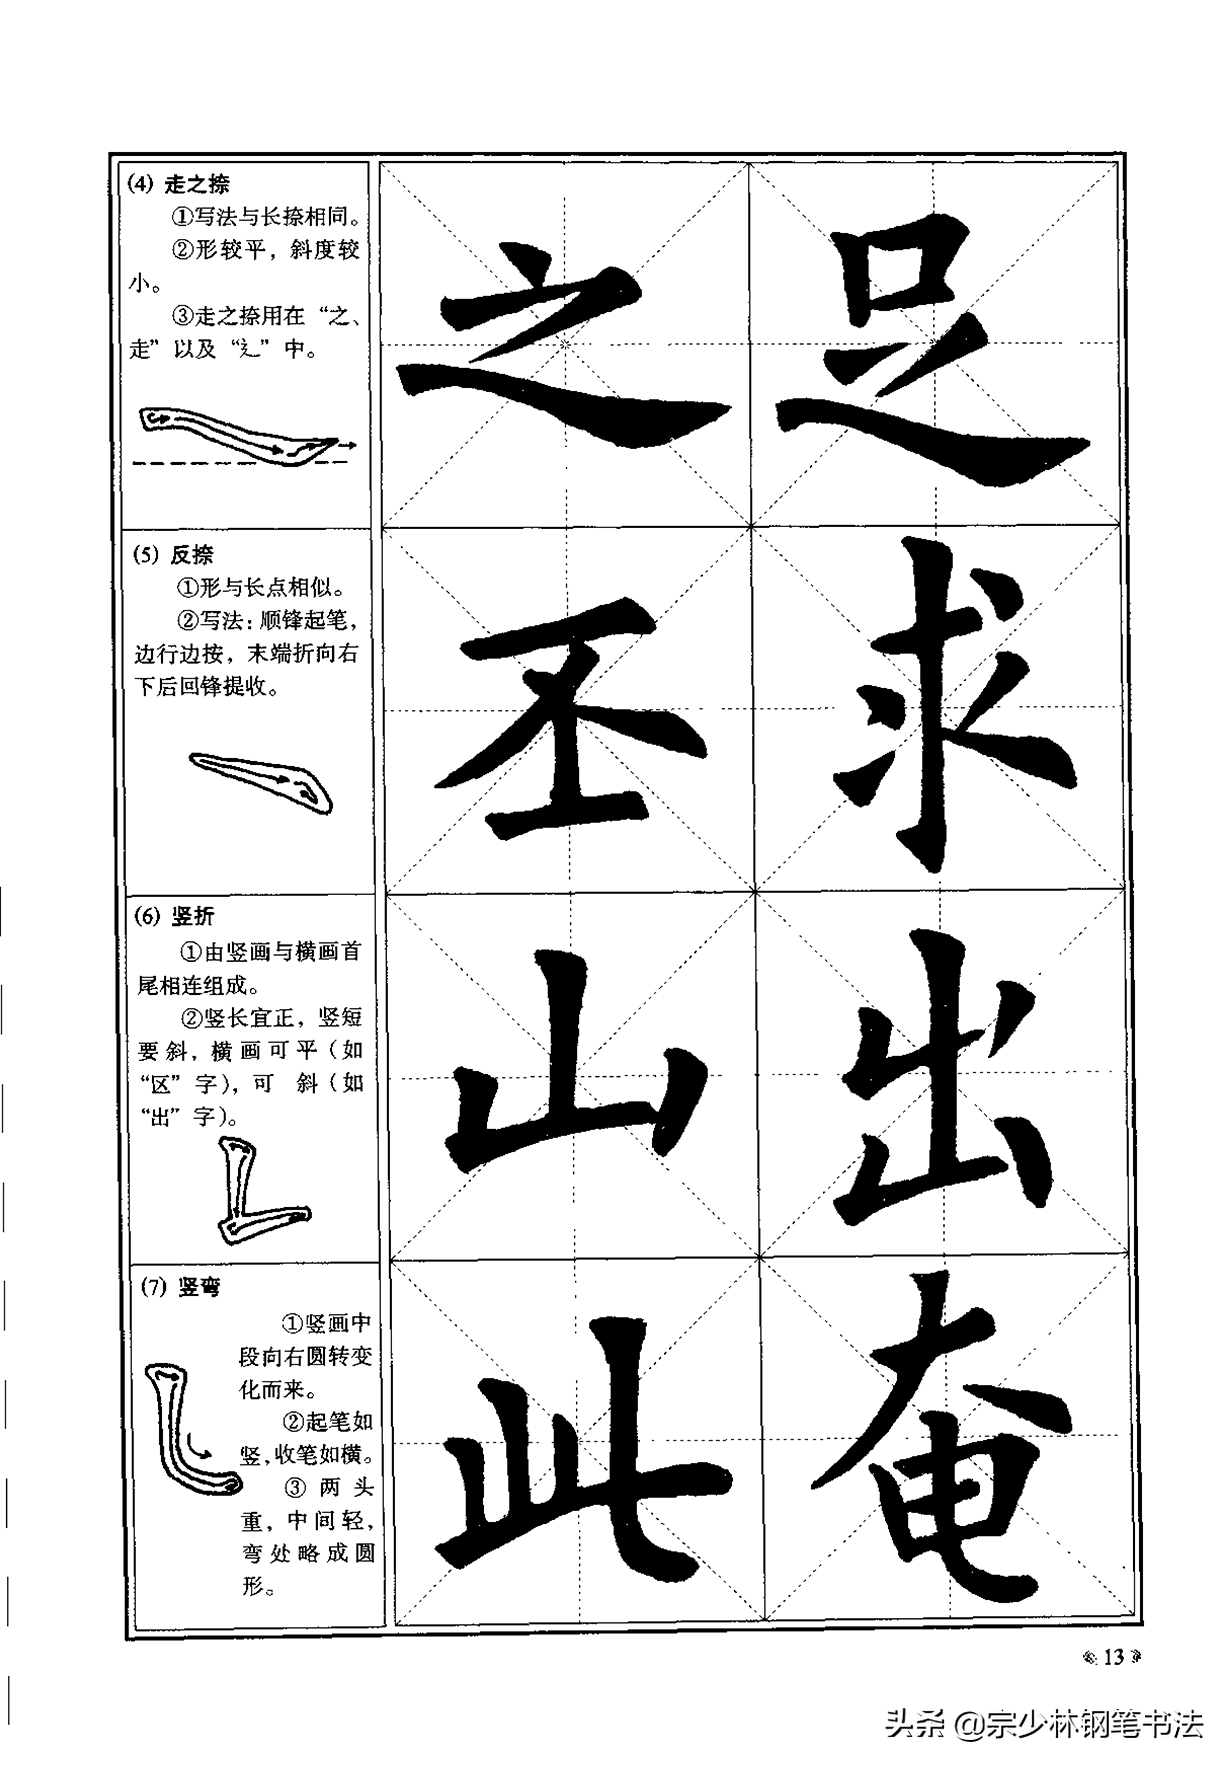 (4) 走之捺
①写法与长捺相同。
②形较平，斜度较
小。
③走之捺用在“之、
走”以及“辶”中。
之 足
(5) 反捺
①形与长点相似。
②写法：顺锋起笔，
边行边按，末端折向右
下后回锋提收。
丕 求
(6) 竖折
①由竖画与横画首
尾相连组成。
②竖长宜正，竖短
要斜，横画可平（如
“区”字），可 斜（如
“出”字）。
山 出
(7) 竖弯
①竖画中
段向右圆转变
化而来。
②起笔如
竖，收笔如横。
③两头
重，中间轻，
弯处略成圆
形。
此 奄
13
头条 @宗少林钢笔书法